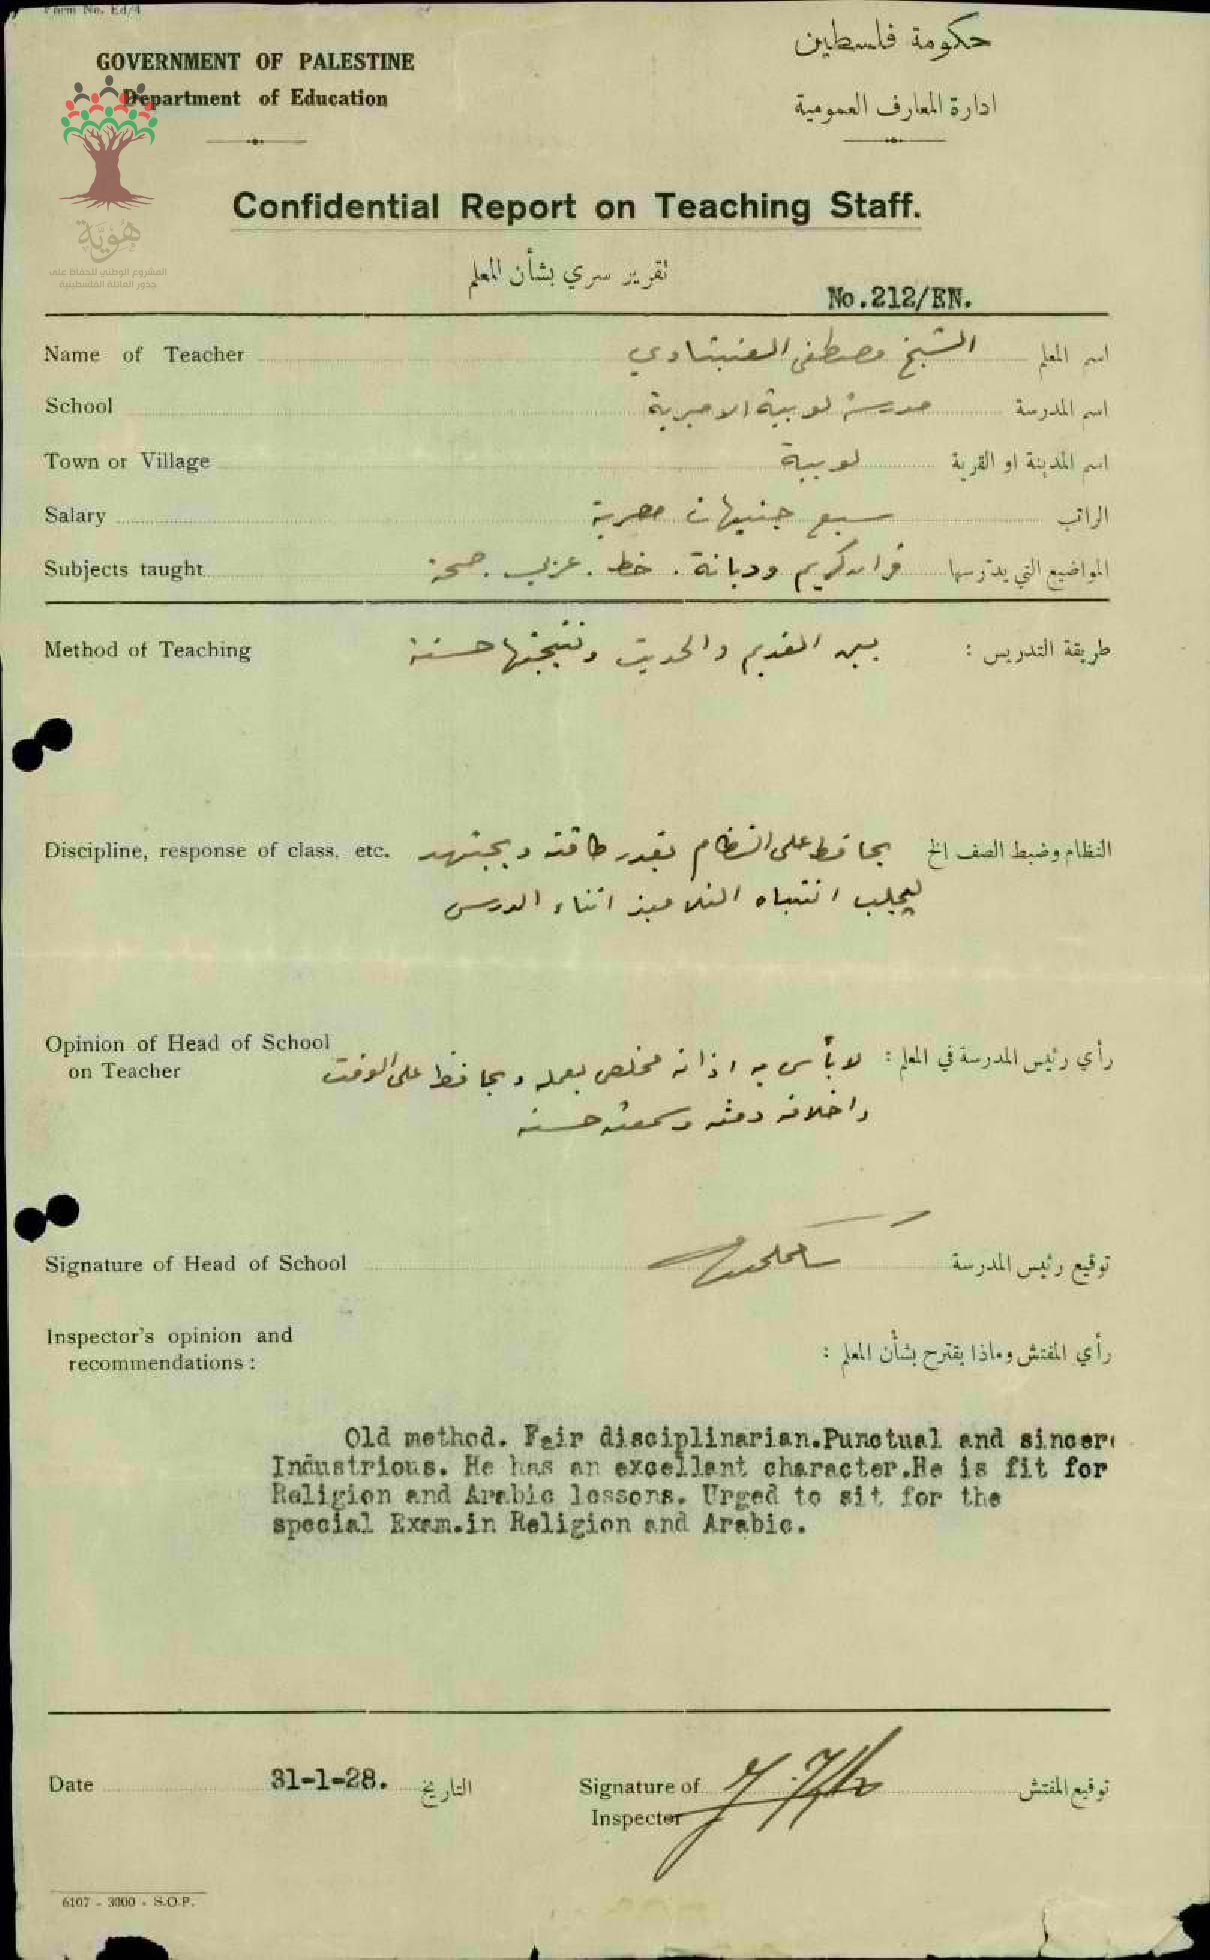 Form No. Ed/4
GOVERNMENT OF PALESTINE
Department of Education
حكومة فلسطين
ادارة المعارف العمومية
هُوِيَّة
المشروع الوطني للحفاظ على
جذور العائلة الفلسطينية
Confidential Report on Teaching Staff.
تقرير سري بشأن المعلم
No.212/EN.
Name of Teacher الشيخ مصطفى اسم المعلم
School مدرسة لوبية الاميرية اسم المدرسة
Town or Village لوبية اسم المدينة او القرية
Salary سبع جنيهات مصرية الراتب
Subjects taught قران كريم وديانة . خط . عربي . صحة المواضيع التي يدرسها
Method of Teaching بين القديم والحديث ونتيجتها حسنة طريقة التدريس :
Discipline, response of class, etc. يحافظ على النظام بقدر طاقته ويجتهد النظام وضبط الصف الخ
ليجلب انتباه التلاميذ اثناء الدرس
Opinion of Head of School
on Teacher لا بأس به اذ انه مخلص بعمله ويحافظ على الوقت رأي رئيس المدرسة في المعلم :
واخلاقه دمثه وسمعته حسنه
Signature of Head of School توقيع رئيس المدرسة
Inspector's opinion and
recommendations : رأي المفتش وماذا يقترح بشأن المعلم :
Old method. Fair disciplinarian.Punctual and sincere
Industrious. He has an excellent character.He is fit for
Religion and Arabic lessons. Urged to sit for the
special Exam.in Religion and Arabic.
Date 31-1-28. التاريخ
Signature of
Inspector توقيع المفتش
6107 - 3000 - S.O.P.